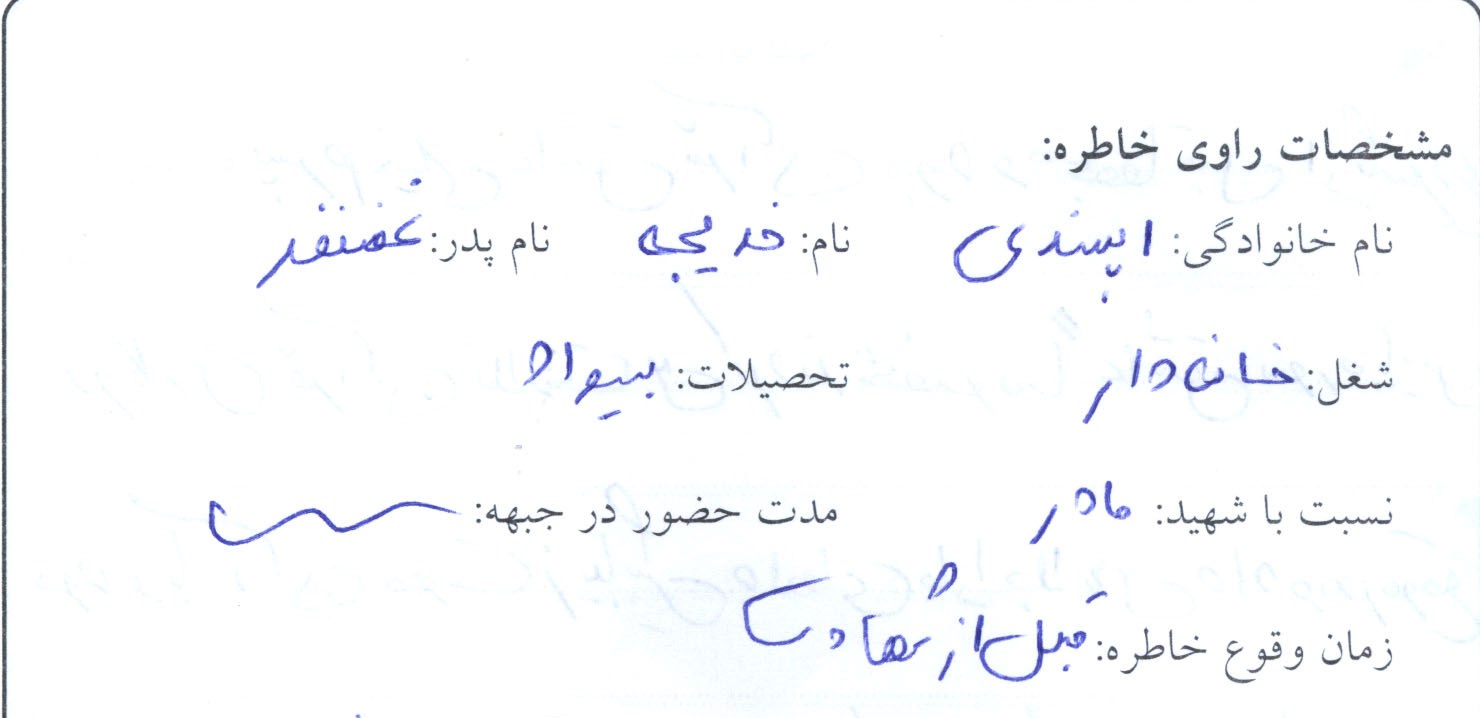 مشخصات راوی خاطره:
نام خانوادگی: اپسندی نام: خدیجه نام پدر: غضنفر
شغل: خانه دار تحصیلات: بیسواد
نسبت با شهید: مادر مدت حضور در جبهه:
زمان وقوع خاطره: قبل از شهادت